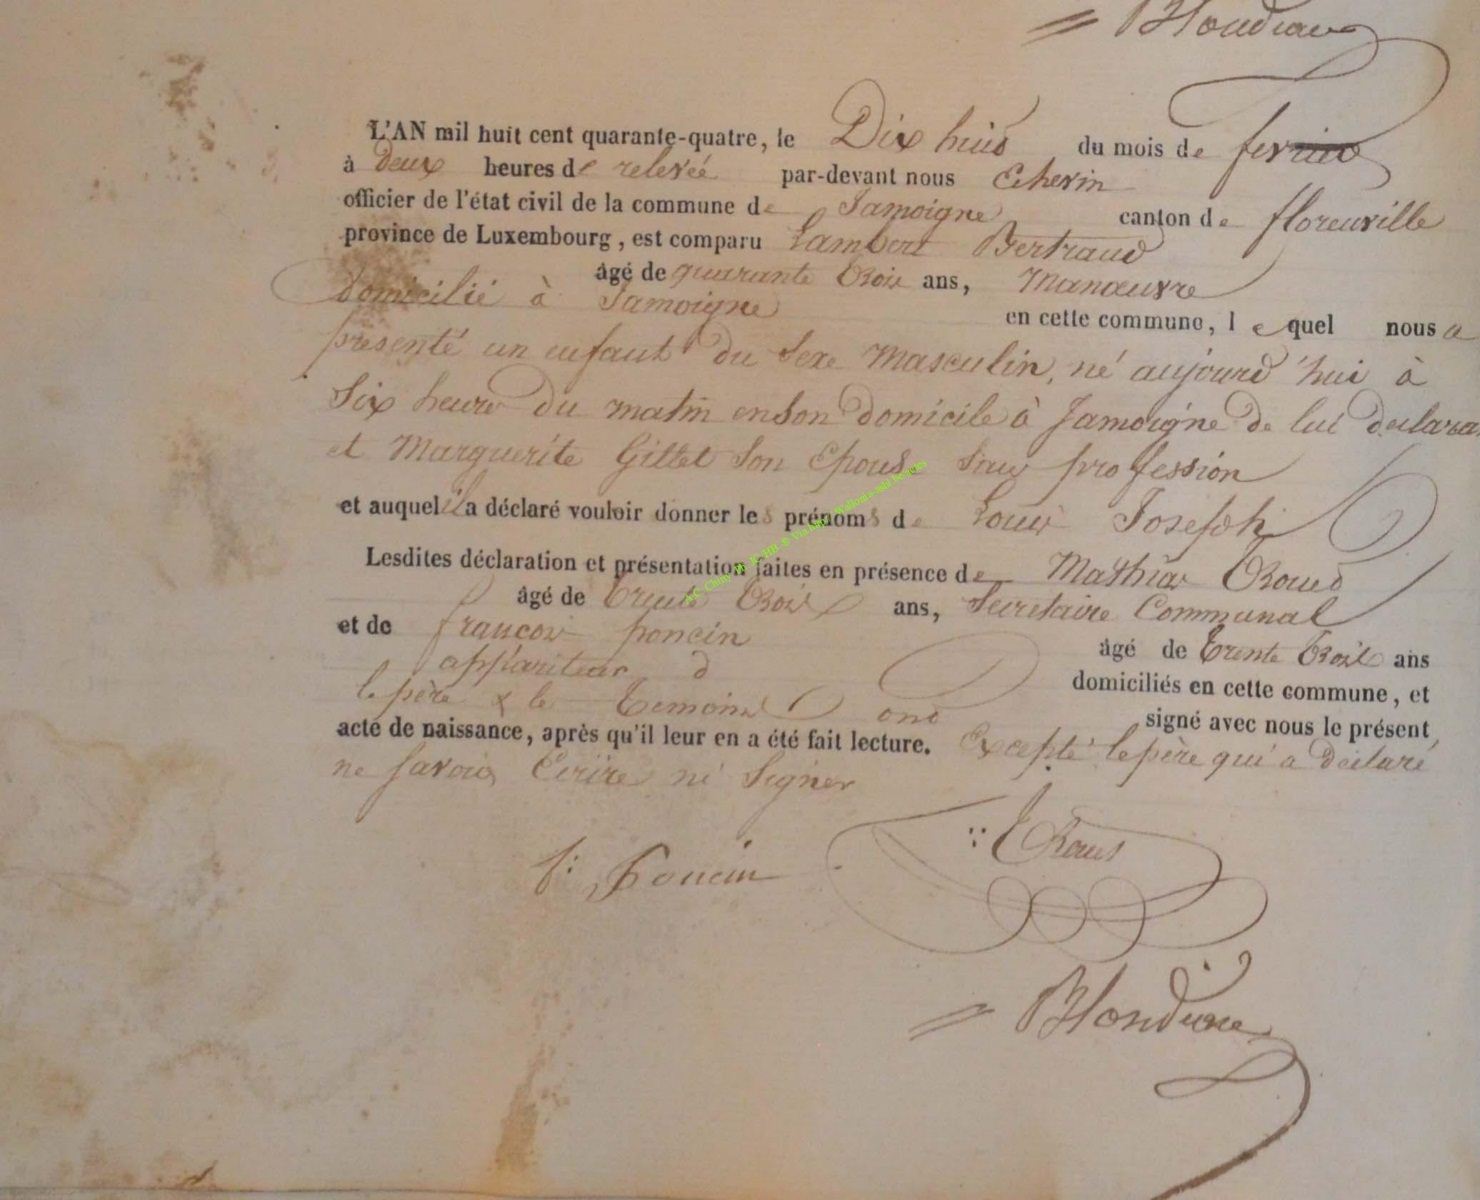 = Blondiau
L'AN mil huit cent quarante-quatre, le Dix huit du mois de fevrier
à deux heures de relevée par-devant nous Echevin
officier de l'état civil de la commune de Jamoigne canton de florenville
province de Luxembourg, est comparu Lambert Bertrand
âgé de quarante trois ans, Manœuvre
domicilié à Jamoigne en cette commune, lequel nous a
présenté un enfant du sexe Masculin, né aujourd'hui à
six heures du matin en son domicile à Jamoigne de lui declarant
et Marguerite Gillet son Epouse sans profession
et auquel il a déclaré vouloir donner les prénoms de Louis Joseph
Lesdites déclaration et présentation faites en présence de Mathias
âgé de trente trois ans, Secretaire Communal
et de françois poncin âgé de trente trois ans
appariteur domiciliés en cette commune, et
le père & le temoins ont signé avec nous le présent
acte de naissance, après qu'il leur en a été fait lecture. Excepté le père qui a déclaré
ne savoir Ecrire ni signer
f: Poncin
= Blondiau